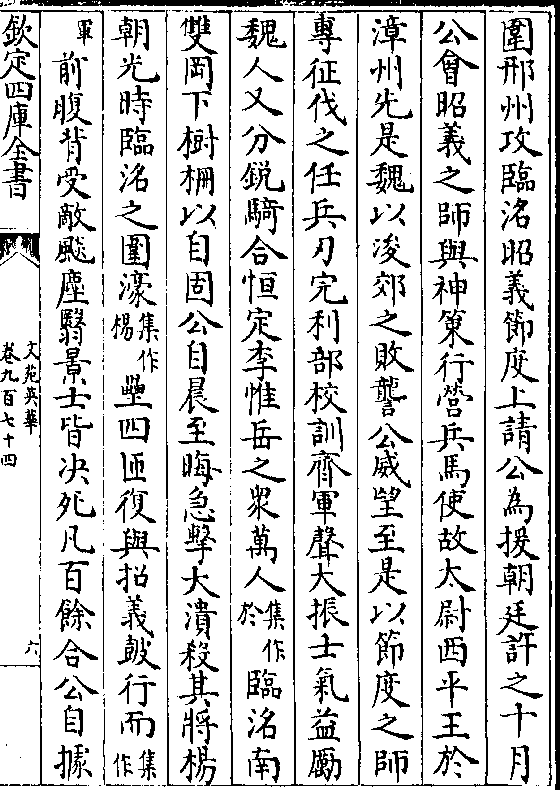 圍邢州攻臨洺昭義節度上請公為援朝廷許之十月
公會昭義之師與神策行營兵馬使故太尉西平王於
漳州先是魏以浚郊之敗讋公威望至是以節度之師
專征伐之任兵刃完利部校訓齊軍聲大振士氣益勵
魏人又分銳騎合恒定李惟岳之衆萬人集作於臨洺南
雙岡下樹柵以自固公自晨至晦急擊大潰殺其將楊
朝光時臨洺之圍濠集作楊壘四匝復與招義鼓行而集作
軍前腹背受敵飈塵翳景士皆决死凡百餘合公自據
欽定四庫全書
文苑英華
卷九百七十四
六